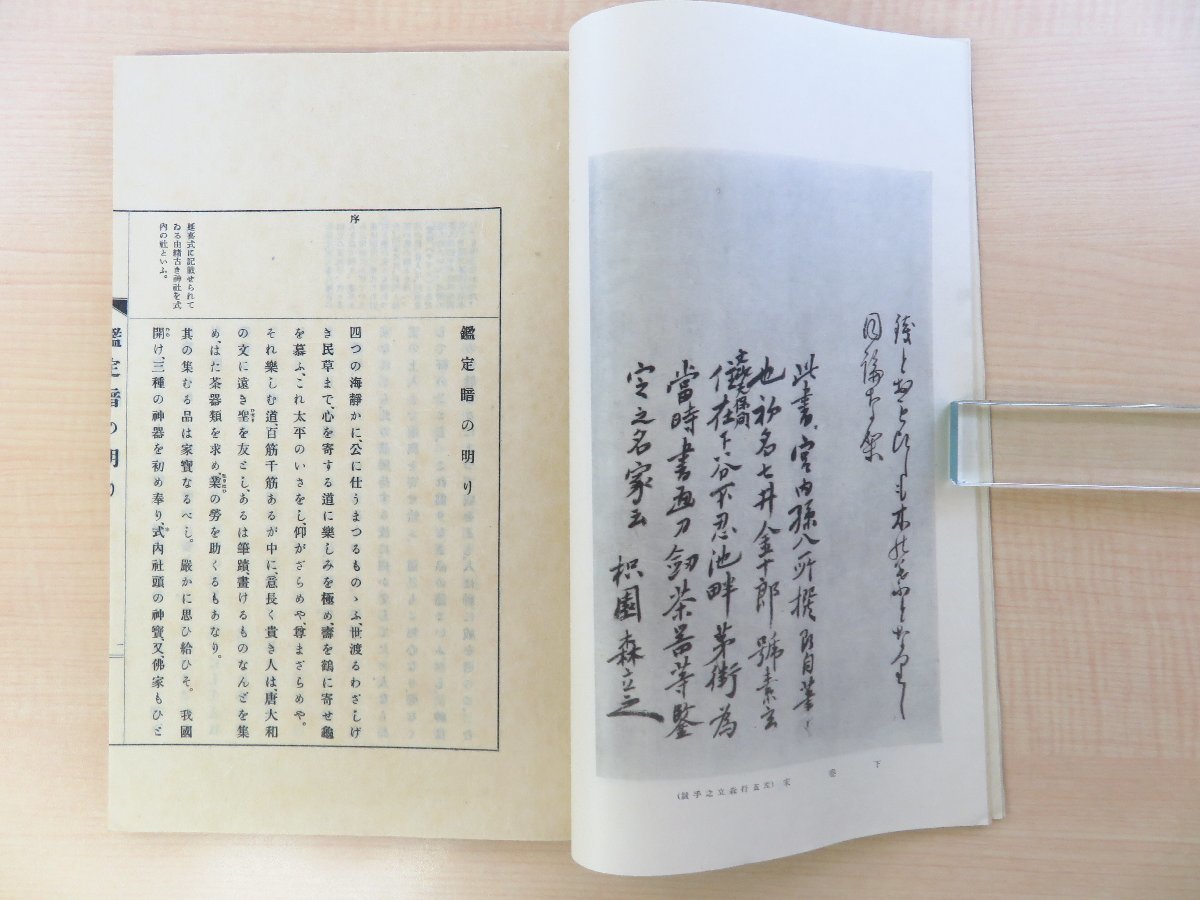 此書、宮内孫八所撰即自筆
也初名七井金十郎號素玄
住在下谷不忍池畔茅街為
當時書画刀劔茶器等鑒
定之名家云 枳園森立之
下巻末(左五行森立之手識)
序
延喜式に記載せられて
ゐる由緒古き神社を式
内の社といふ。
鑑定暗の明り
四つの海靜かに、公に仕うまつるものゝふ、世渡るわざしげ
き民草まで、心を寄する道に樂しみを極め、壽を鶴に寄せ龜
を慕ふ、これ太平のいさをし、仰がざらめや、尊まざらめや。
それ樂しむ道、百筋千筋あるが中に、意長く貴き人は、唐大和
の文に遠き聖を友とし、あるは筆蹟、畫けるものなんどを集
め、はた茶器類を求め、業の勞を助くるもあなり。
其の集むる品は家寶なるべし。嚴かに思ひ給ひそ。我國
開け、三種の神器を初め奉り、式內社頭の神寶、又、佛家もひと
鑑定暗の明り